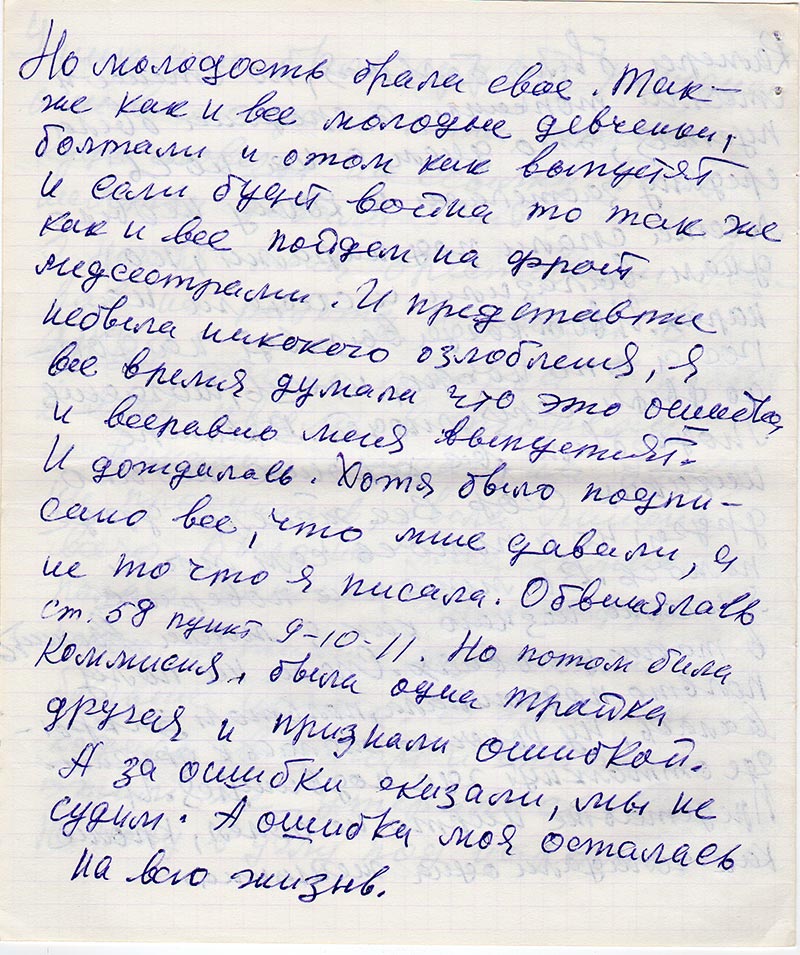 Но молодость брала свое. Так-
же как и все молодые девченки,
болтали и отом как выпустят
и если будет война то так же
как и все пойдем на фронт
медсестрами. И представте
небыла никокого озлобления, я
все время думала что это ошибка,
и всеравно меня выпустят.
И дождалась. Хотя было подпи-
сано все, что мне давали, а
не то что я писала. Обвинялась
ст. 58 пункт 9-10-11. Но потом была
Коммисия, была одна тройка
другая и признали ошибкой.
А за ошибки сказали, мы не
судим. А ошибка моя осталась
на всю жизнь.